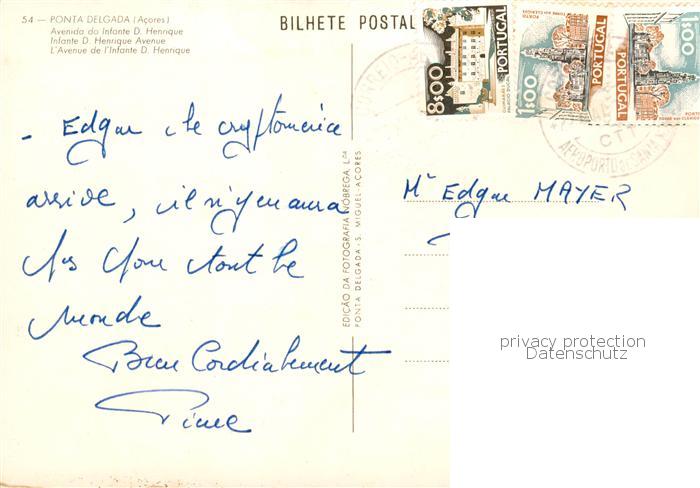 54 - PONTA DELGADA (Açores)
Avenida do Infante D. Henrique
Infante D. Henrique Avenue
L'Avenue de l'Infante D. Henrique
BILHETE POSTAL
8$00
PORTUGAL
1$00
PORTUGAL
1$00
PORTUGAL
CTT
AEROPORTO DE SANTA
- Edgar le cryptomeria
arrive, il n'y en aura
pas pour tout le
monde
Bien Cordialement
EDIÇÃO DA FOTOGRAFIA NÓBREGA, LDA
PONTA DELGADA - S. MIGUEL - AÇORES
Mr Edgar MAYER
privacy protection
Datenschutz